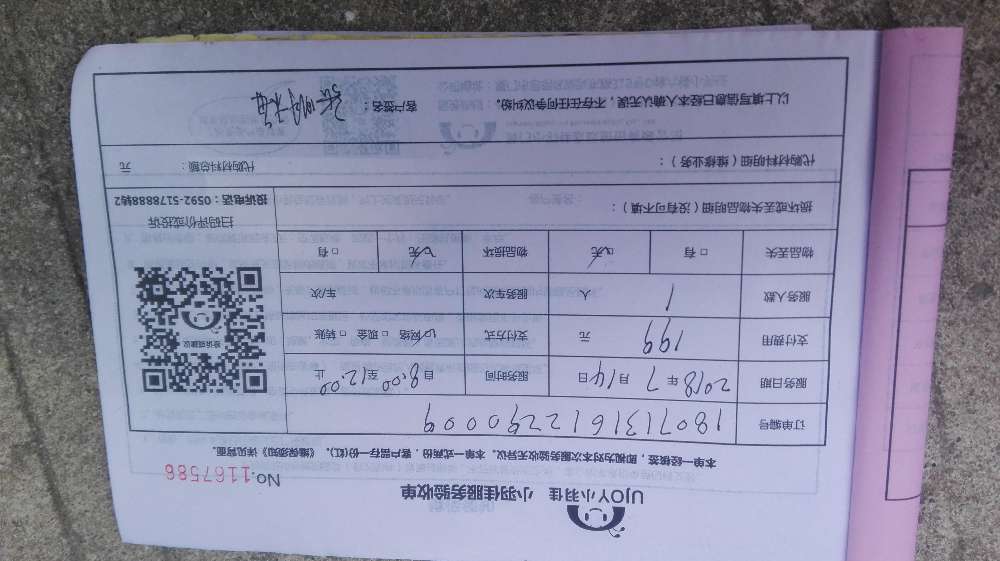 UJOY小羽佳 小羽佳服务验收单
No:1167586
本单一经签签，即视为对本次服务验收无异议。本单一式两份，客户留存一份(红)。《维保须知》详见背面。
订单编号 1807131612290009
服务日期 2018年7月14日 服务时间 自8:00至12:00止
支付费用 199元 支付方式 网络 □ 现金 □ 转账
服务人数 1人 服务车次 车/次
物品丢失 □ 有 无 物品损坏 无 □ 有
损坏或丢失物品明细（没有可不填）：
投诉或建议
扫码评价或投诉
投诉电话：0592-5178888转2
代购材料明细（维修业务）： 代购材料总额： 元
以上填写信息已经本人确认无误，不存在任何争议纠纷。 客户签名：